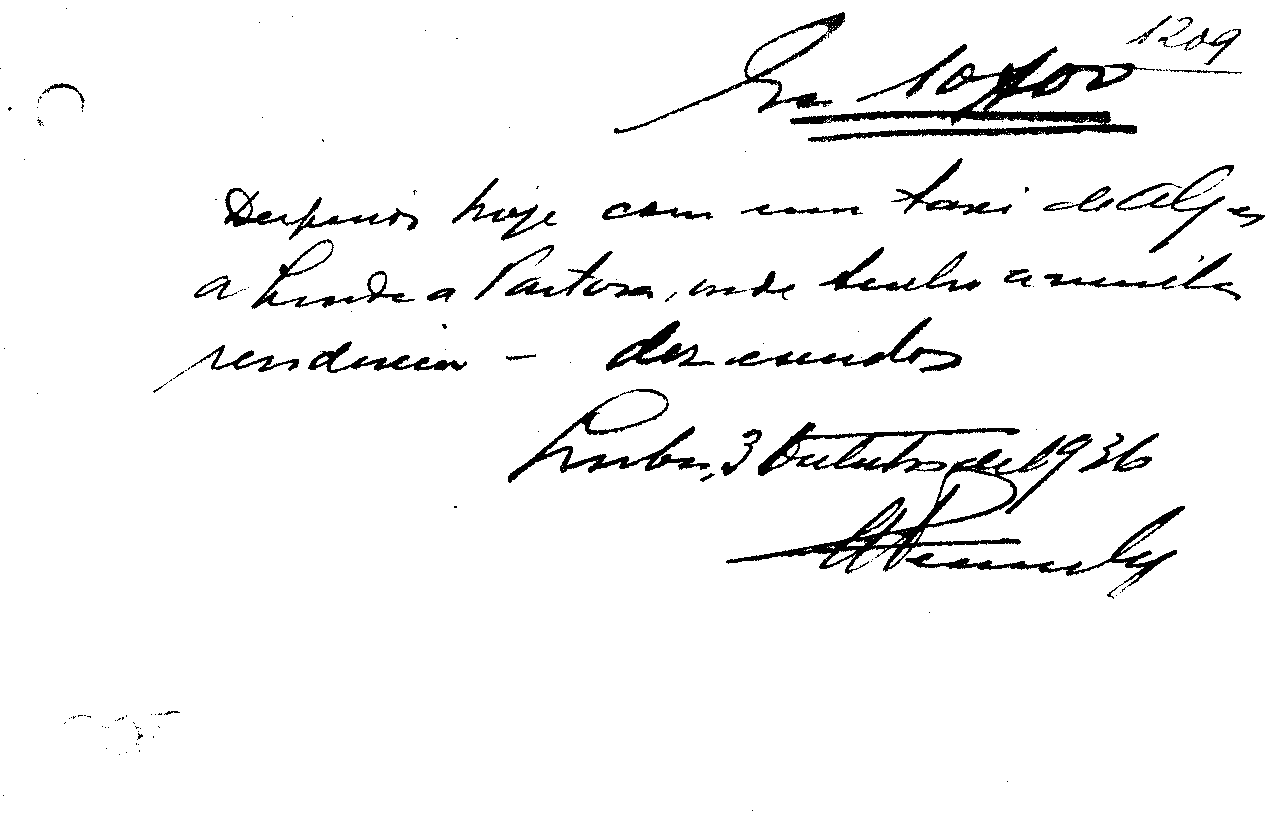 1209
Esc 10$00
Despesas hoje com um taxi de Algés
a Linda a Pastora, onde tenho a minha
residencia - dez escudos
Lisboa, 3 Outubro de 1936